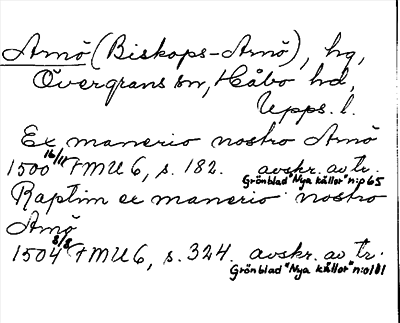 Arnö (Biskops-Arnö), hg,
Övergrans sn, Håbo hd,
Upps. l.
Ex manerio nostro Arnö
1500 16/11 FMU 6, s. 182. avskr. av tr.
Grönblad "Nya källor" n:o 65
Raptim ex manerio nostro
Arnö
1504 8/8 FMU 6, s. 324. avskr. av tr.
Grönblad "Nya källor" n:o 181